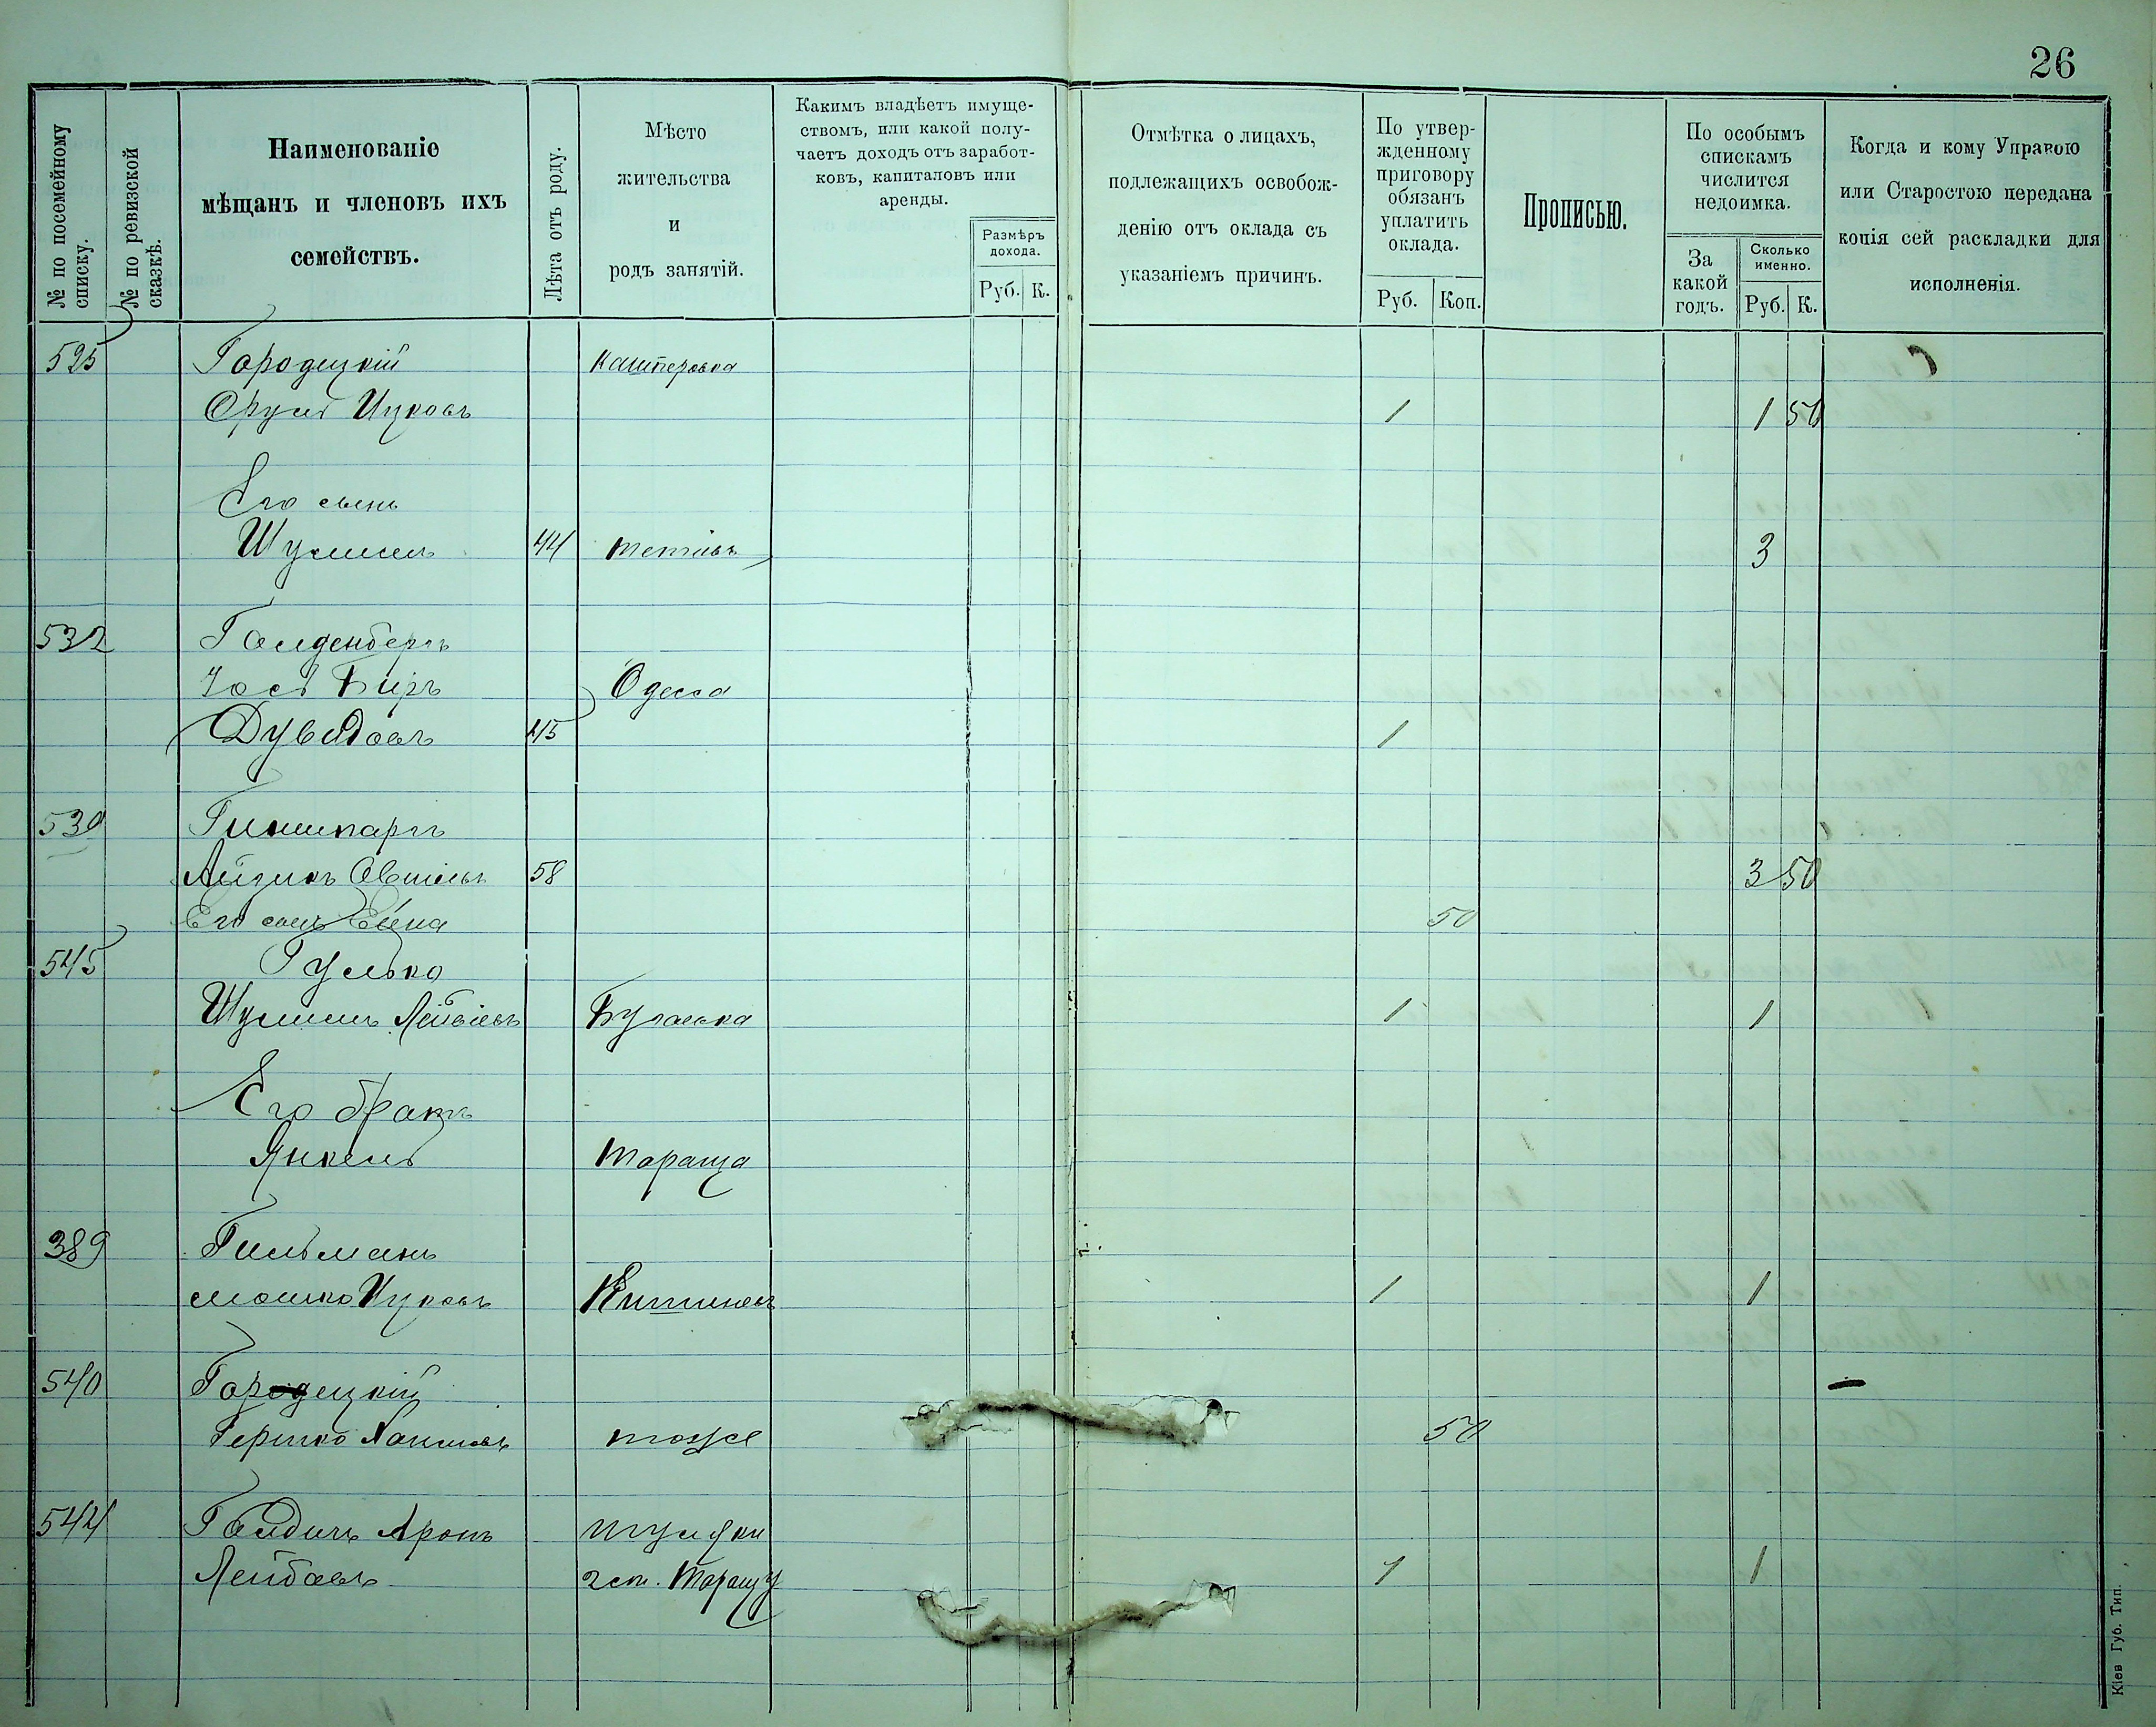 26
№ по посемейному списку.
№ по ревизской сказкѣ.
Наименованіе
мѣщанъ и членовъ ихъ
семействъ.
Лѣта отъ роду.
Мѣсто
жительства
и
родъ занятій.
Какимъ владѣетъ имуще-
ствомъ, или какой полу-
чаетъ доходъ отъ заработ-
ковъ, капиталовъ или
аренды.
Размѣръ
дохода.
Руб. К.
Отмѣтка о лицахъ,
подлежащихъ освобож-
денію отъ оклада съ
указаніемъ причинъ.
По утвер-
жденному
приговору
обязанъ
уплатить
оклада.
Руб. Коп.
Прописью.
По особымъ
спискамъ
числится
недоимка.
За
какой
годъ.
Сколько
именно.
Руб. К.
Когда и кому Управою
или Старостою передана
копія сей раскладки для
исполненія.
525 Городецкій Кашперовка
Сруль Ицковъ 1 1 50
Его сынъ
Шулимъ 44 Тетіевъ 3
532 Голденбергъ
Іось Беръ Одесса
Дувидовъ 45 1
530
Айзикъ 58 3 50
Его сынъ 50
545 Гулько
Шулимъ Лейбіевъ 1 1
Его братъ
Янкель Тараща
389 Гильманъ
Мошко Ицковъ Кишиневъ 1 1
540 Городецкій
Гершко тоже 50
544 Аронъ
Лейбовъ 1 1
Кіев Губ. Тип.